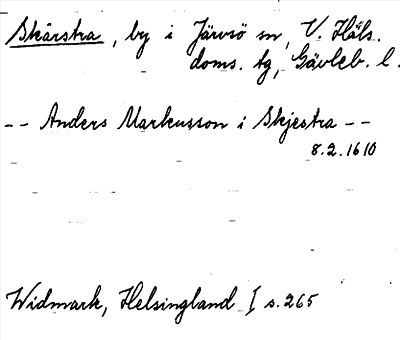 Skårstra, by i Järvsö sn, V. Häls.
doms. tg, Gävleb. l.
-- Anders Markusson i Skjestra --
8.2.1610
Widmark, Helsingland I s. 265